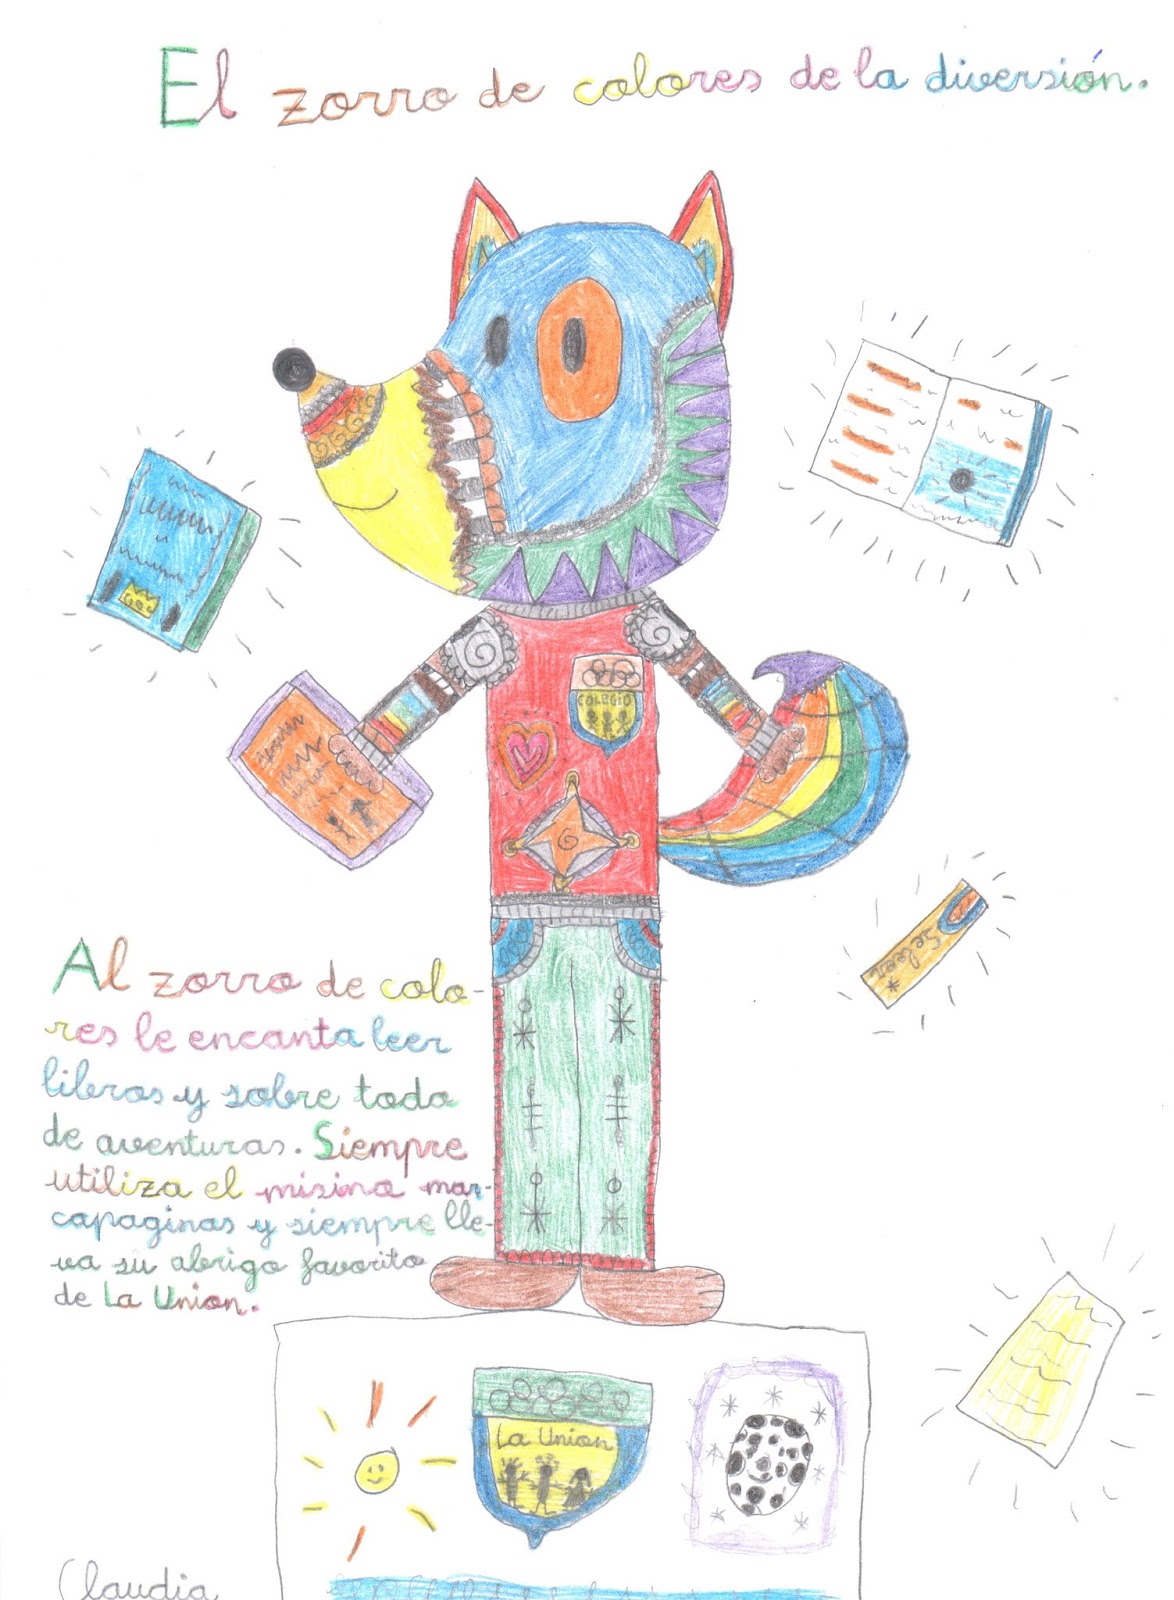 El zorro de colores de la diversión.
COLEGIO
Al zorro de colo-
res le encanta leer
libros y sobre todo
de aventuras. Siempre
utiliza el mismo mar-
capaginas y siempre lle-
va su abrigo favorito
de La Union.
La Union
Claudia